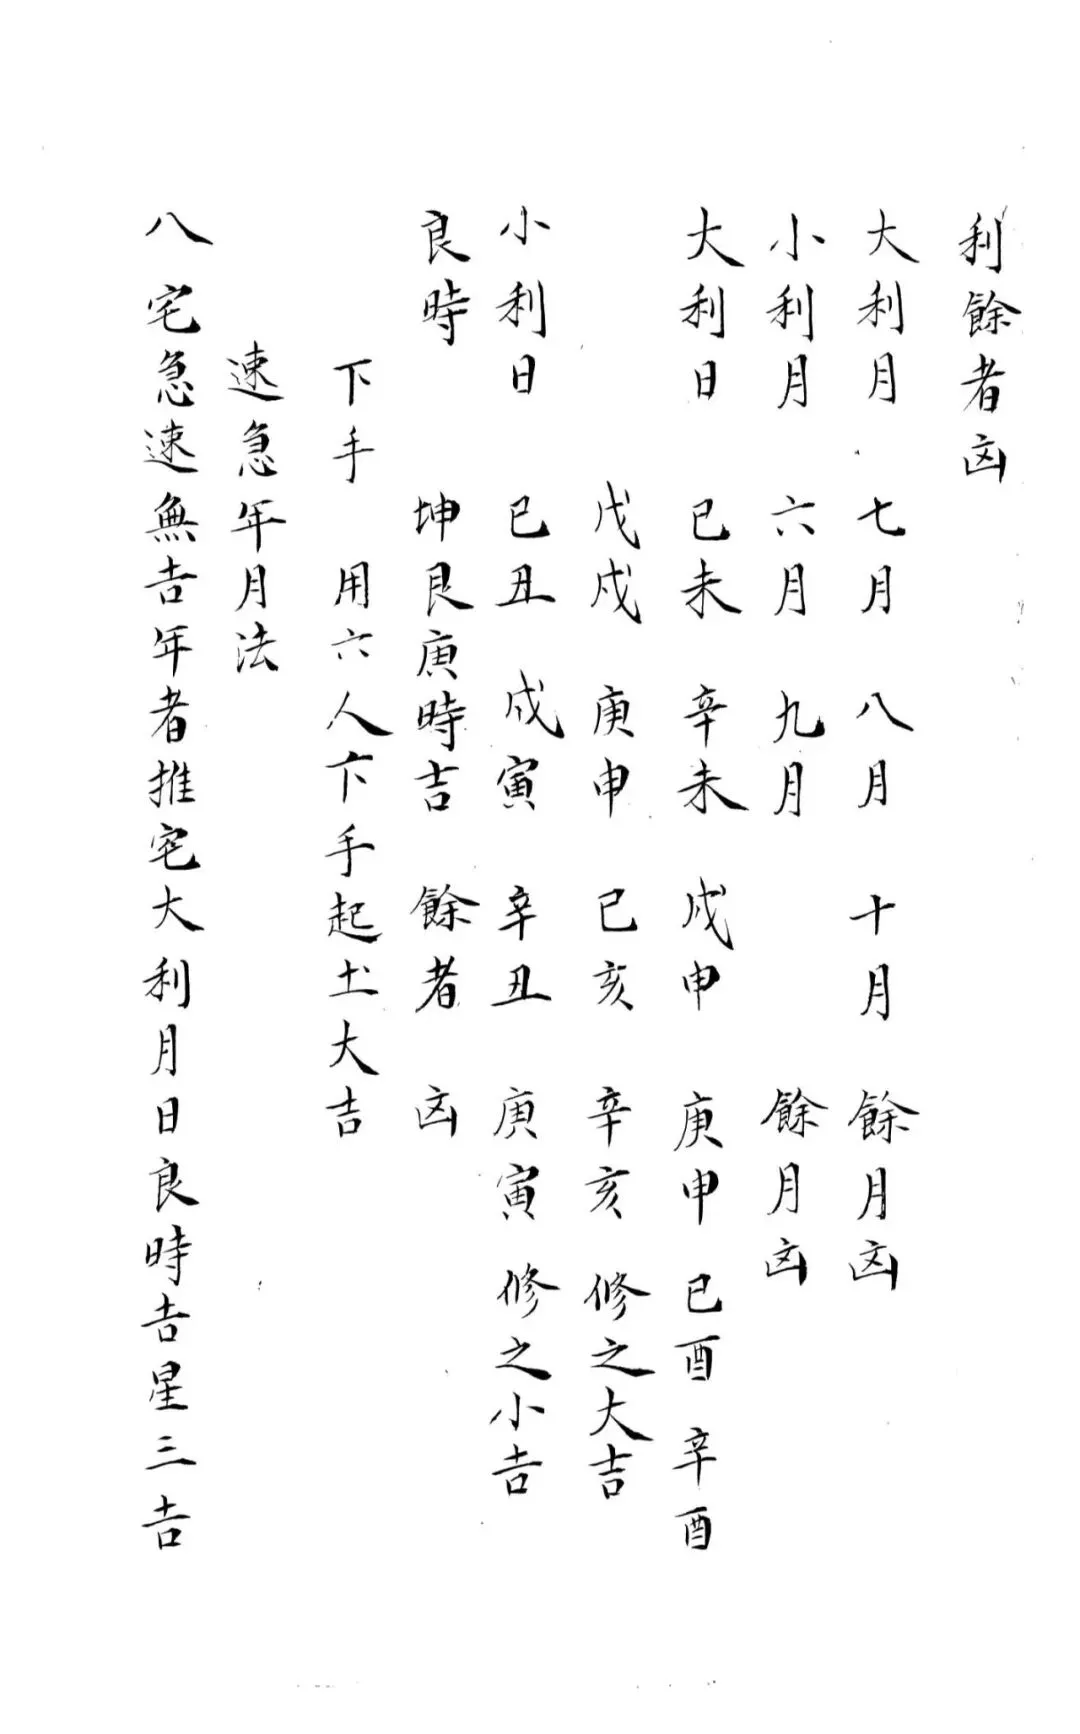 利餘者凶
大利月 七月 八月 十月 餘月凶
小利月 六月 九月 餘月凶
大利日 已未 辛未 戊申 庚申 已酉 辛酉
戊戌 庚申 已亥 辛亥 修之大吉
小利日 已丑 戊寅 辛丑 庚寅 修之小吉
良時 坤艮庚時吉 餘者 凶
下手 用六人下手起土大吉
速急年月法
八宅急速無吉年者推宅大利月日良時吉星三吉